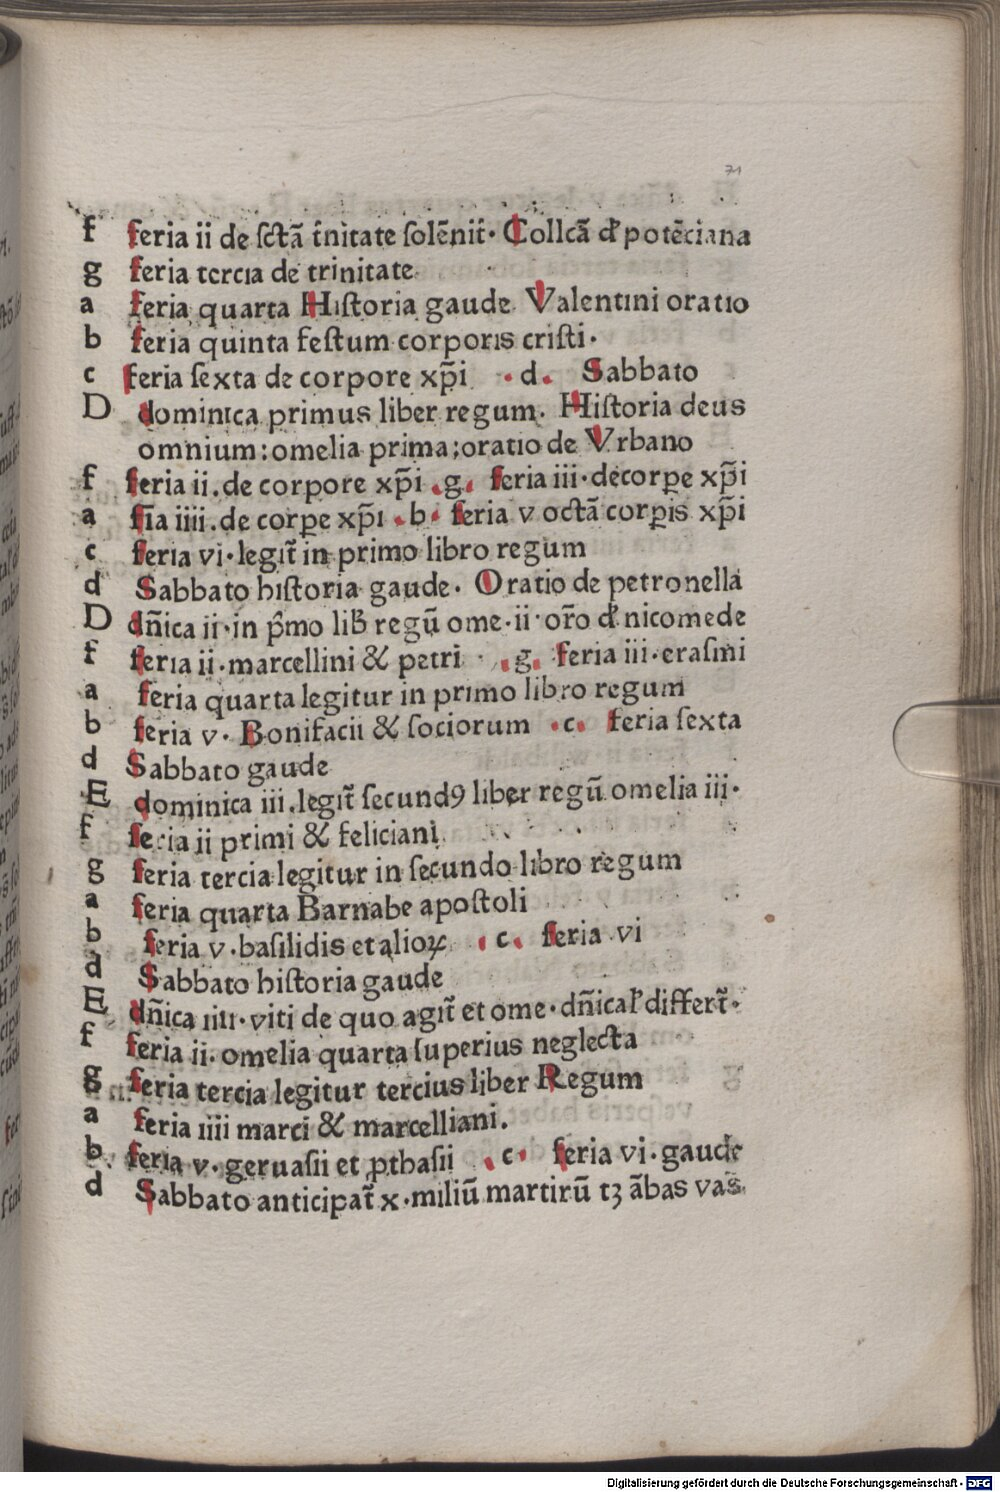 71
f feria ii de sctā t̄nitate solēnit̄· Collcā de potēciana
g feria tercia de trinitate
a feria quarta Historia gaude Valentini oratio
b feria quinta festum corporis cristi·
c feria sexta de corpore xp̄i ·d· Sabbato
D dominica primus liber regum· Historia deus
omnium: omelia prima; oratio de Vrbano
f feria ii.de corpore xp̄i .g. feria iii·decorꝑe xp̄i
a fīa iiii.de corꝑe xp̄i .b· feria v octā corꝑis xp̄i
c feria vi·legit̄ in primo libro regum
d Sabbato historia gaude· Oratio de petronella
D dn̄ica ii·in p̄mo lib̄ regū ome·ii·or̄o de nicomede
f feria ii·marcellini & petri .g. feria iii·erasmi
a feria quarta legitur in primo libro regum
b feria v· Bonifacii & sociorum ·c· feria sexta
d Sabbato gaude
E dominica iii.legit̄ secundꝯ liber regū omelia iii·
f feria ii primi & feliciani
g feria tercia legitur in secundo libro regum
a feria quarta Barnabe apostoli
b feria v·basilidis et alioꝝ .c. feria vi
d Sabbato historia gaude
E dn̄ica iiii·viti de quo agit̄ et ome·dn̄ical' differt̄·
f feria ii· omelia quarta superius neglecta
g feria tercia legitur tercius liber Regum
a feria iiii marci & marcelliani.
b feria v·geruasii et ꝓthasii .c· feria vi·gaude
d Sabbato anticipat̄ x·miliū martirū tꝫ ābas vas
Digitalisierung gefördert durch die Deutsche Forschungsgemeinschaft - DFG